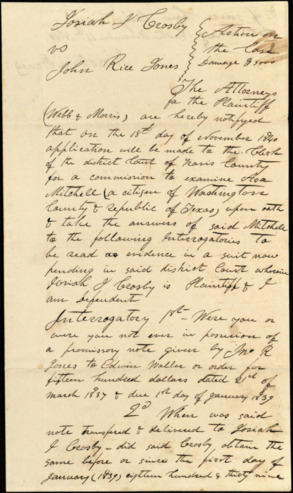 Josiah J Crosby
vs
John Rice Jones
Action on
the Case
Damage $3000
The Attorneys
for the Plaintiff
(Webb & Morris) are hereby notifyed
that on the 18th day of November 1840
application will be made to the Clerk
of the district Court of Travis County
for a commission to examine Asa
Mitchell (a citizen of Washington
County & republic of Texas) upon oath
& take the answers of said Mitchell
to the following Interrogatories to
be read as evidence in a suit now
pending in said district Court wherein
Josiah J Crosby is Plaintiff & I
am Defendent
Interrogatory 1st - Were you or
were you not ever in possession of
a promissory note given by Jno R
Jones to Edwin Waller or order for
fifteen hundred dollars dated 21st of
march 1837 & due 1st day of January 1839
2d When was said
note transfered & delivered to Josiah
J Crosby - did said Crosby obtain the
same before or since the first day of
January (1839) eighteen hundred & thirty nine